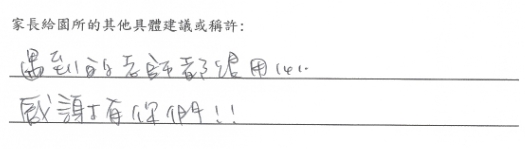 家長給園所的其他具體建議或稱許:
遇到的老師都很用心
感謝有你們!!